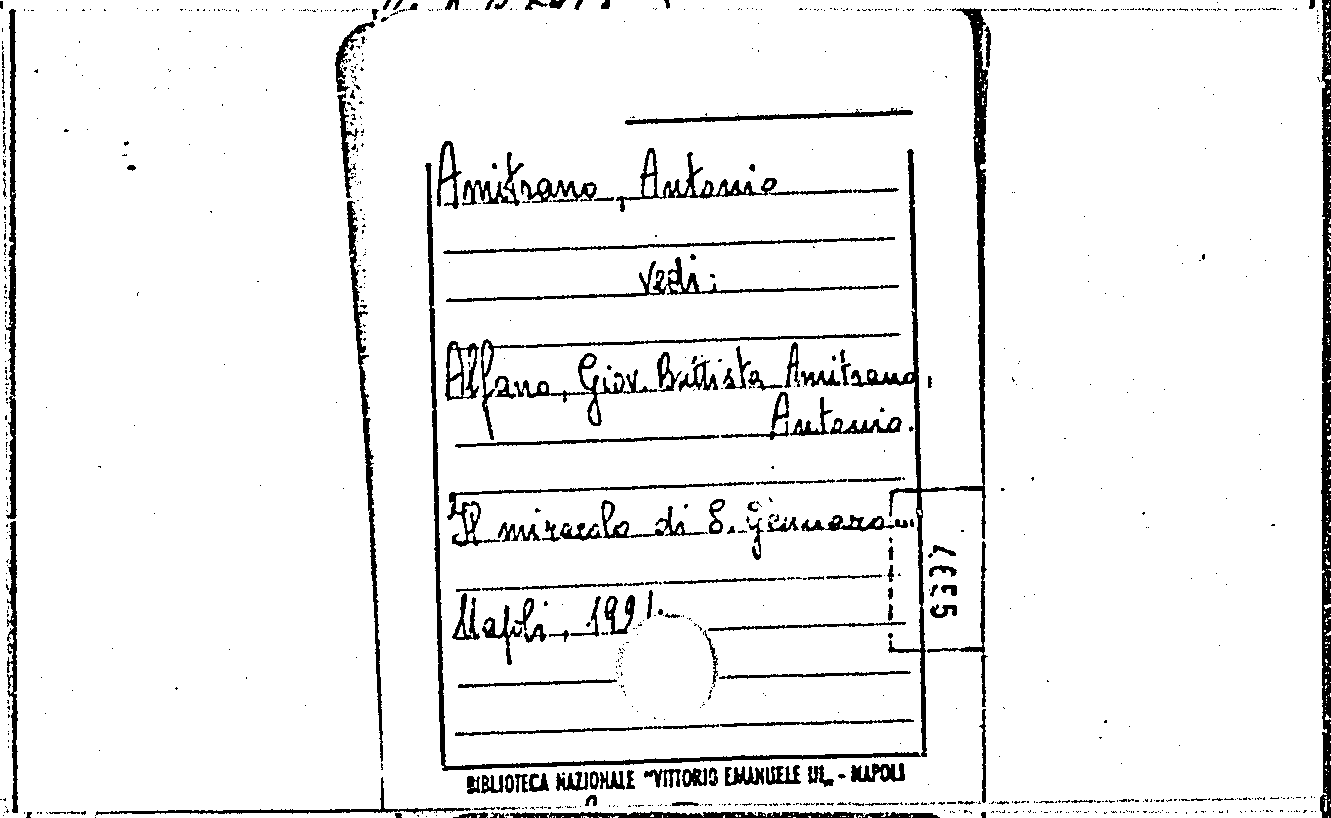 Amitrano, Antonio
vedi:
Alfano, Giov. Battista Amitrano,
Antonio.
Il miracolo di S. Gennaro...
Napoli, 1921.
5337
BIBLIOTECA NAZIONALE "VITTORIO EMANUELE III„ - NAPOLI